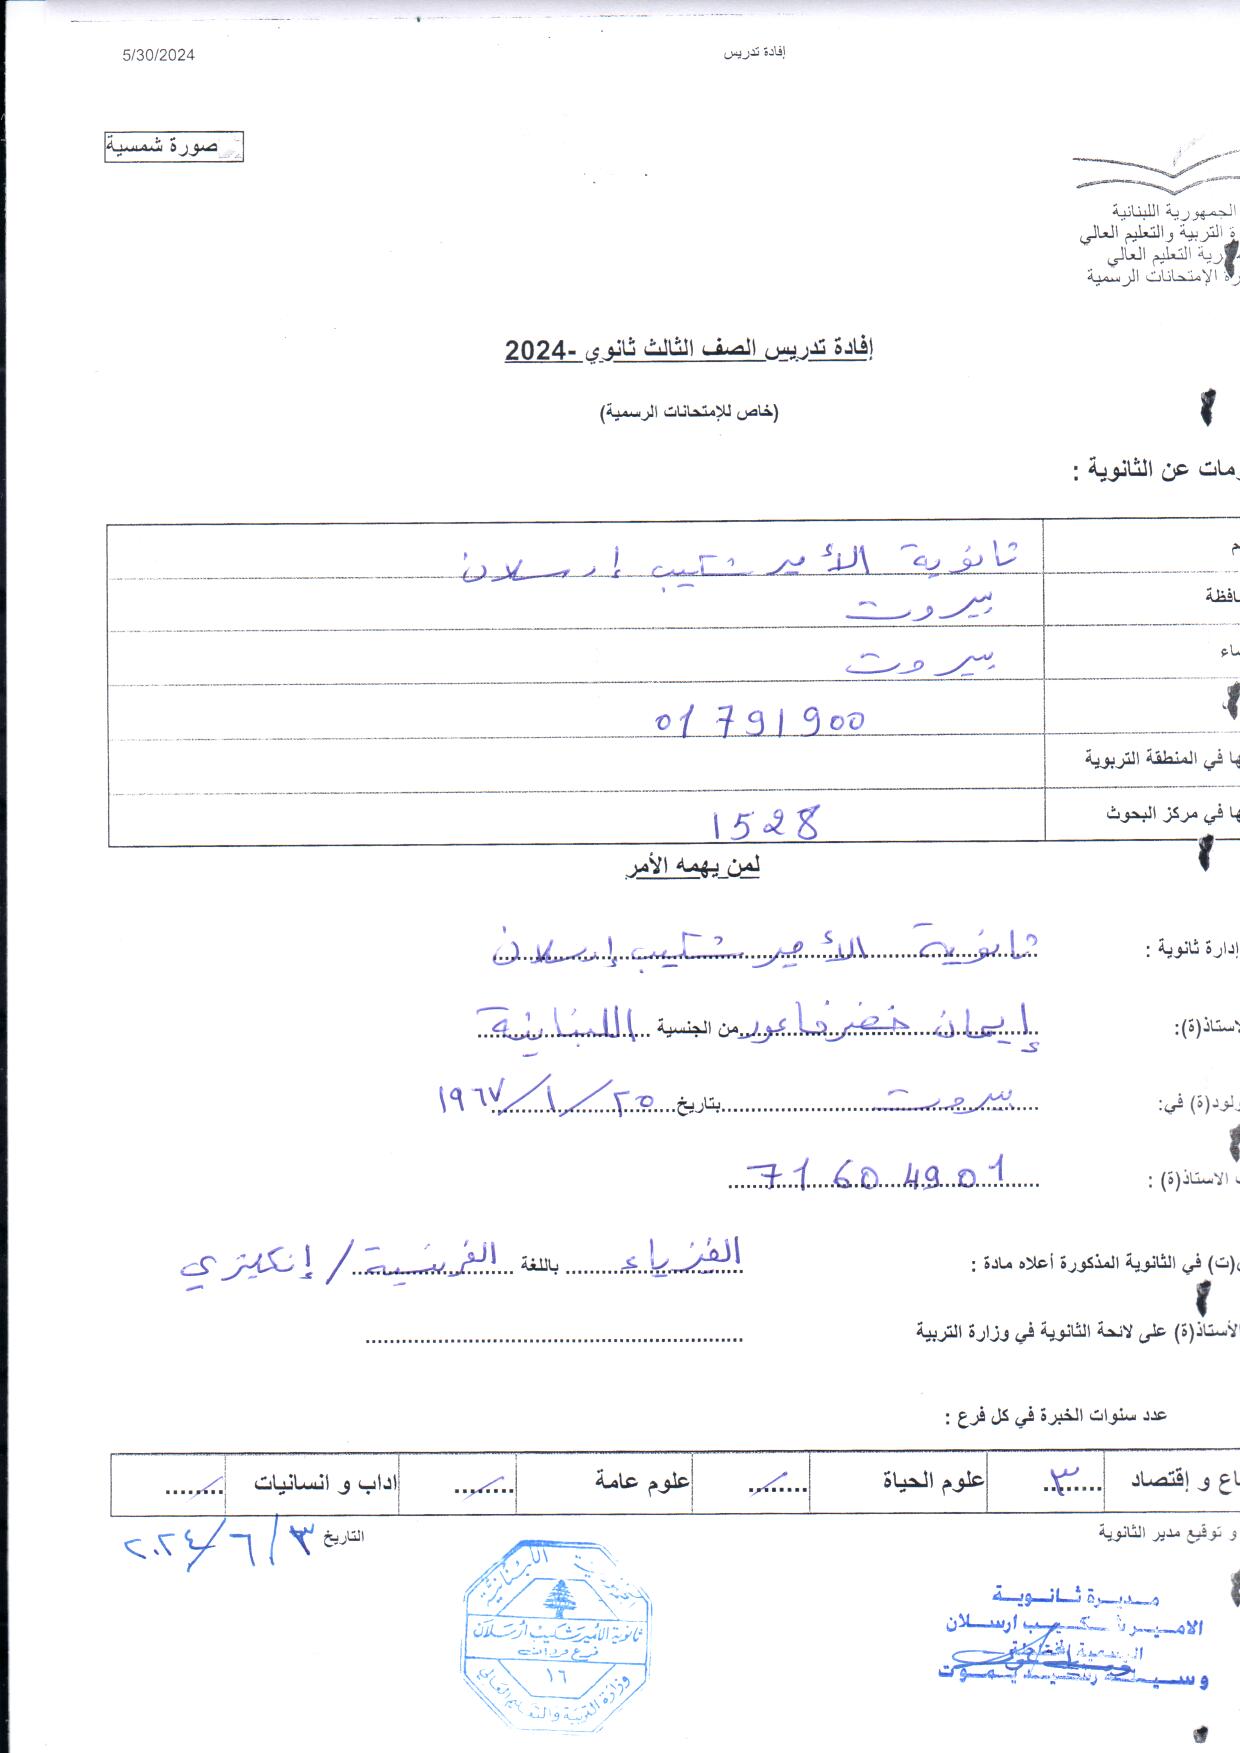 5/30/2024
إفادة تدريس
صورة شمسية
الجمهورية اللبنانية
ة التربية والتعليم العالي
رية التعليم العالي
رة الإمتحانات الرسمية
إفادة تدريس الصف الثالث ثانوي -2024
(خاص للإمتحانات الرسمية)
ومات عن الثانوية :
م ثانوية الأمير شكيب إرسلان
افظة بيروت
ضاء بيروت
01 791900
ها في المنطقة التربوية
ها في مركز البحوث 1528
لمن يهمه الأمر
إدارة ثانوية : ثانوية الأمير شكيب إرسلان
لاستاذ(ة): إيمان خضر فاعور من الجنسية اللبنانية
ولود(ة) في: بيروت بتاريخ ٢٥/١/١٩٦٧
ف الاستاذ(ة) : 71 604901
(ت) في الثانوية المذكورة أعلاه مادة : الفيزياء باللغة الفرنسية/إنكليزي
لأستاذ(ة) على لائحة الثانوية في وزارة التربية
عدد سنوات الخبرة في كل فرع :
اع و إقتصاد ٣ علوم الحياة / علوم عامة / اداب و انسانيات /
و توقيع مدير الثانوية
التاريخ ٣/٦/٢٠٢٤
الجمهورية اللبنانية
ثانوية الأمير شكيب أرسلان
١٦
وزارة التربية والتعليم العالي
مديرة ثانوية
الامير شكيب ارسلان
الرسمية المختلطة
وسيلة رشيد يموت